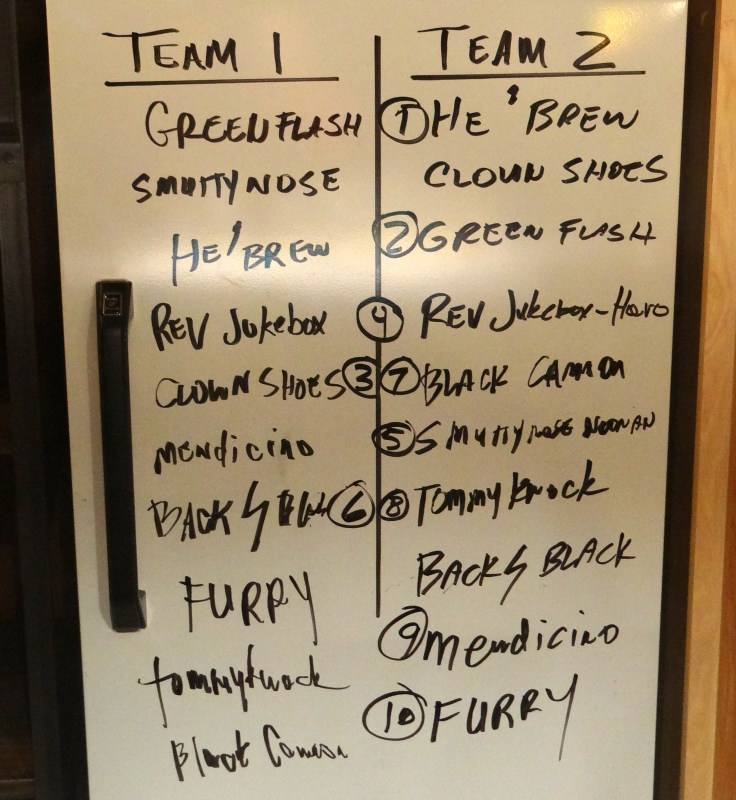 TEAM 1
GREENFLASH
SMUTTYNOSE
HE'BREW
REV JUkEbox
CLOWN SHOES 3
MENdiciNO
BACK 6
FURRY
tommyknock
TEAM 2
1 HE'BREW
CLOWN SHOES
2 GREEN FLASH
4 REV JUkEbox-
7 BLACK CANNON
5 SMUTTYNOSE NOONAN
8 TOMMYKNOCK
BACK BLACK
9 MENdiciNO
10 FURRY